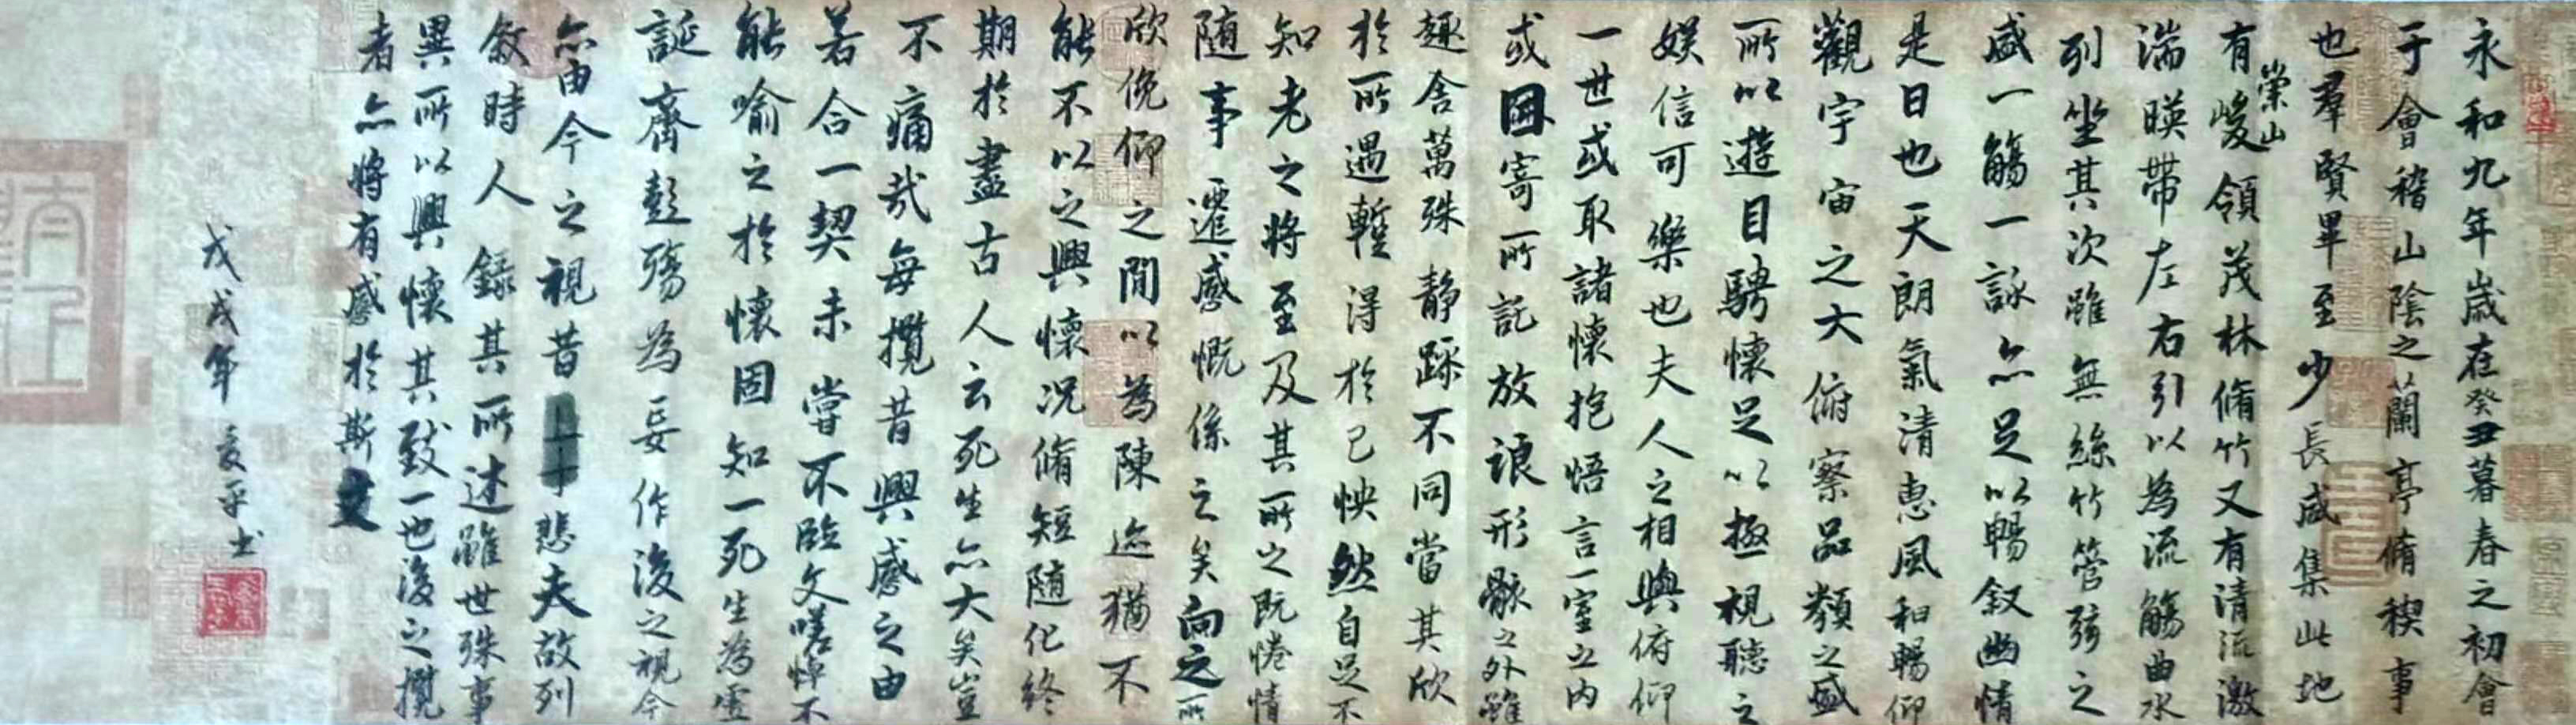 永和九年歲在癸丑暮春之初會
于會稽山陰之蘭亭脩稧事
也羣賢畢至少長咸集此地
有崇山峻領茂林脩竹又有清流激
湍暎帶左右引以為流觴曲水
列坐其次雖無絲竹管弦之
盛一觴一詠亦足以暢叙幽情
是日也天朗氣清惠風和暢仰
觀宇宙之大俯察品類之盛
所以遊目騁懷足以極視聽之
娛信可樂也夫人之相與俯仰
一世或取諸懷抱悟言一室之內
或因寄所託放浪形骸之外雖
趣舍萬殊靜躁不同當其欣
於所遇蹔得於己怏然自足不
知老之將至及其所之既惓情
隨事遷感慨係之矣向之所
欣俛仰之間以為陳迹猶不
能不以之興懷況脩短隨化終
期於盡古人云死生亦大矣豈
不痛哉每攬昔興感之由
若合一契未嘗不臨文嗟悼不
能喻之於懷固知一死生為虛
誕齊彭殤為妄作後之視今
亦由今之視昔悲夫故列
敘時人錄其所述雖世殊事
異所以興懷其致一也後之攬
者亦將有感於斯文
戊戌年 爱平书